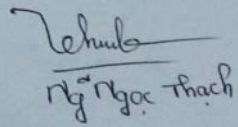 Ng̃ Ngọc Thạch